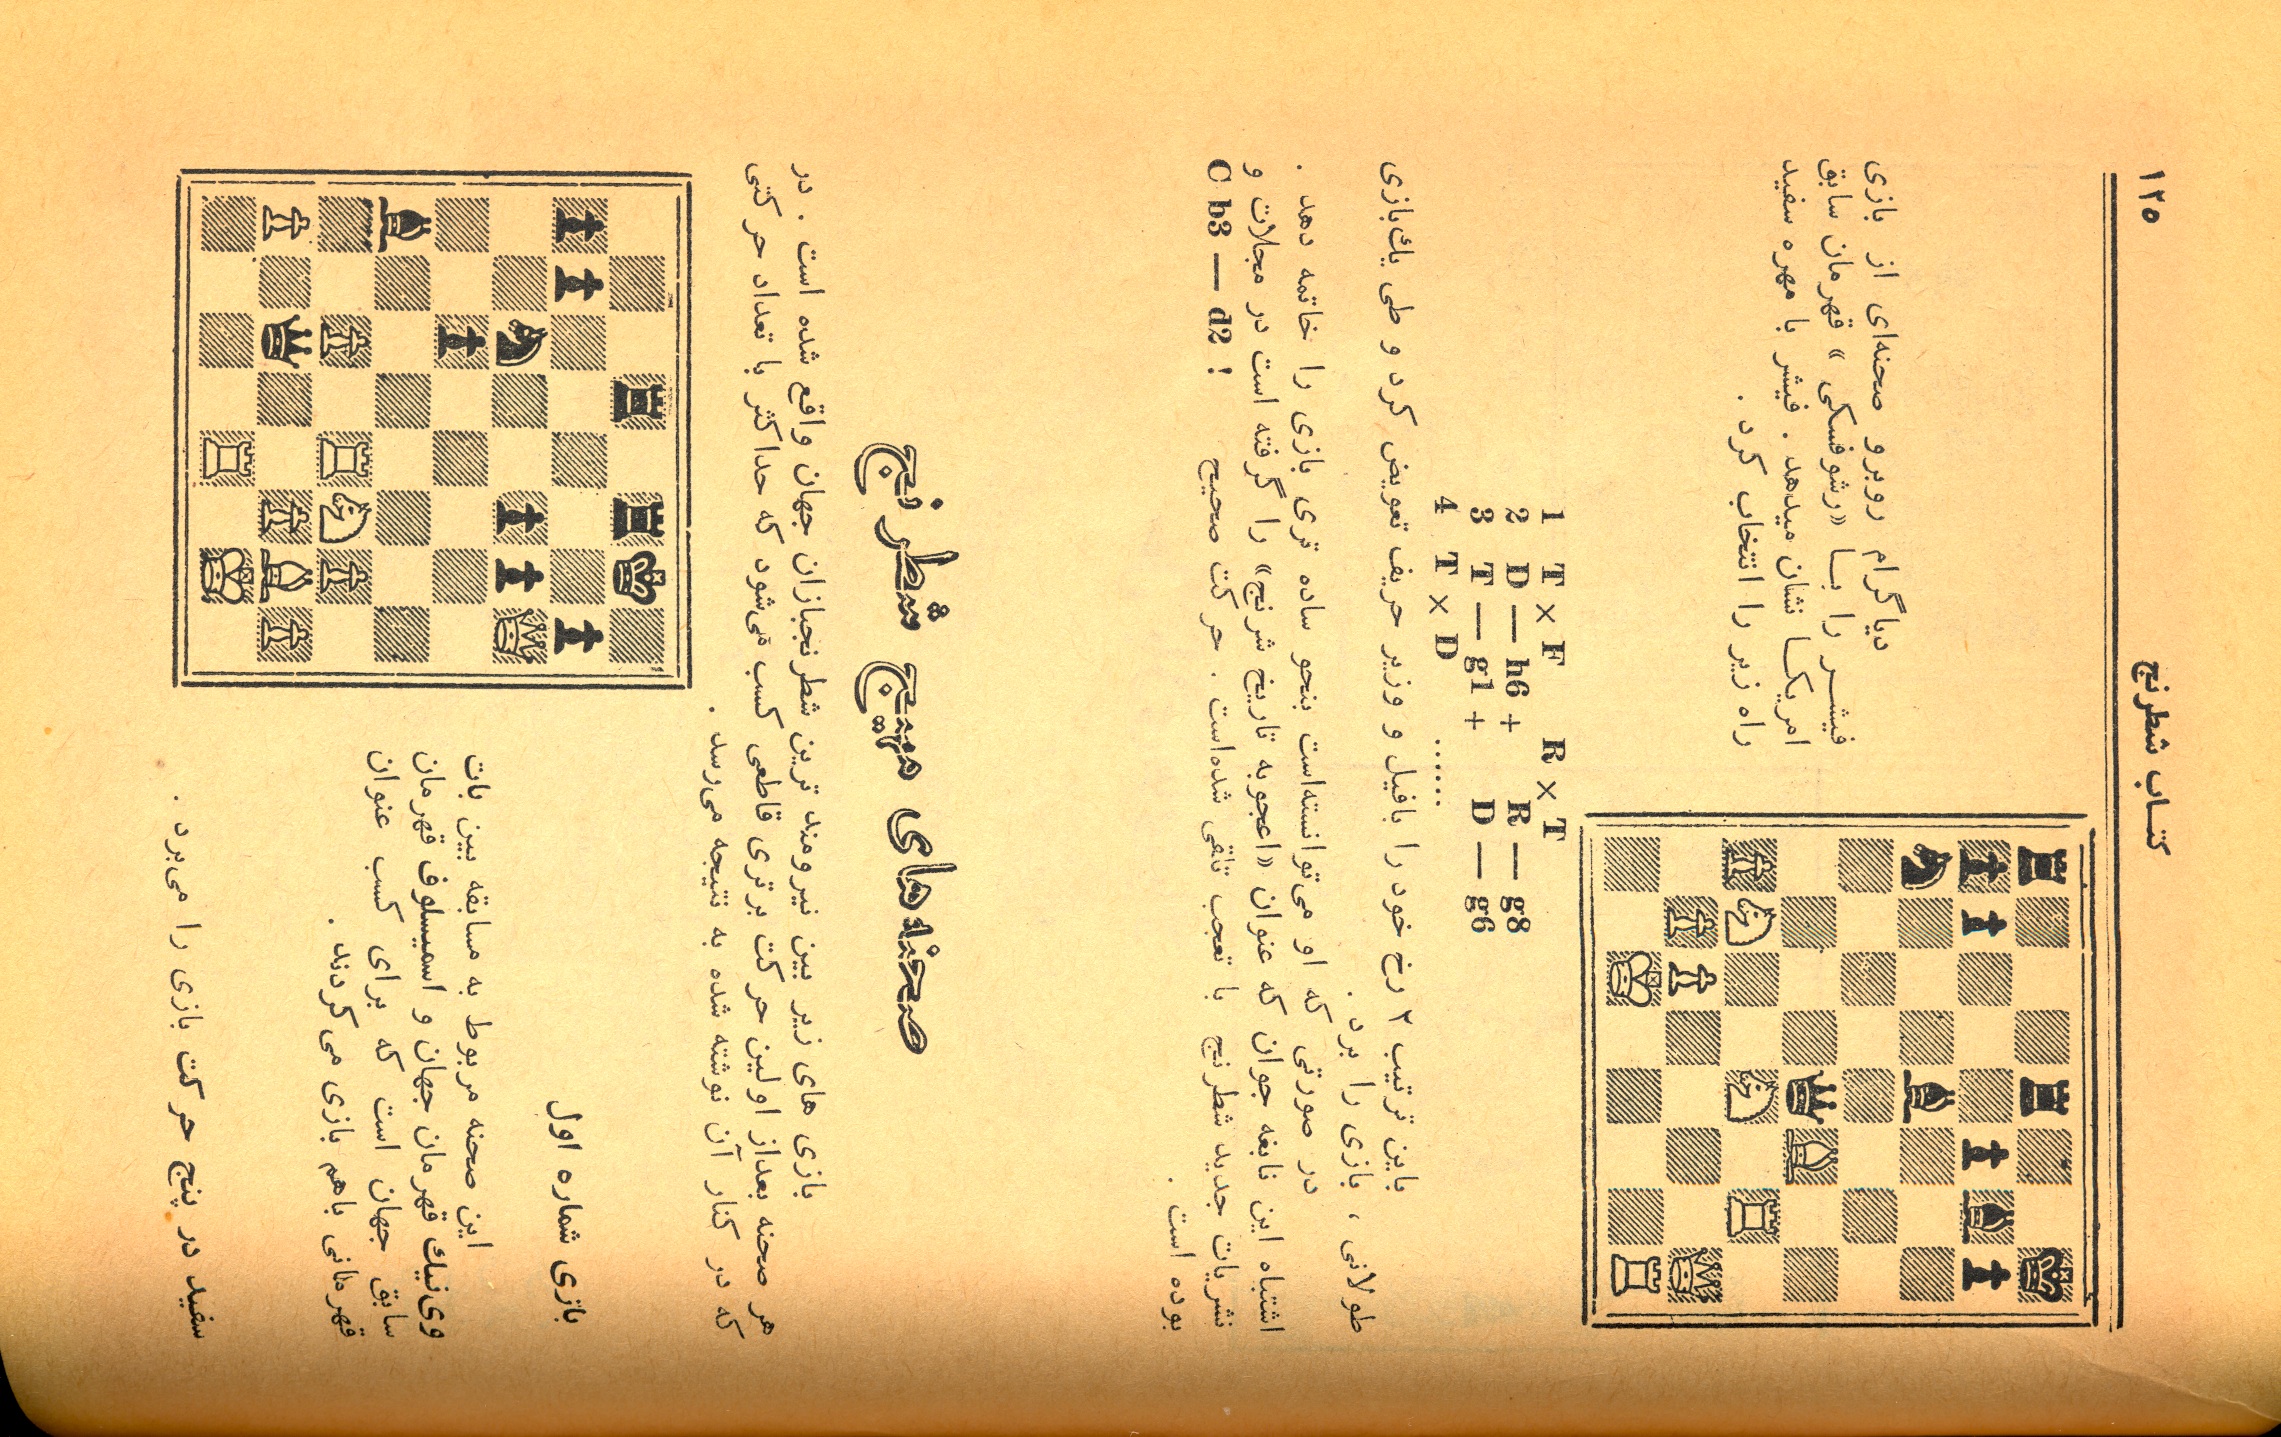 ۱۲۵
کتاب شطرنج
دیاگرام روبرو صحنه‌ای از بازی
فیشر را با «رشوفسکی» قهرمان سابق
امریکا نشان میدهد. فیشر با مهره سفید
راه زیر را انتخاب کرد.
1 T × F R × T
2 D — h6 + R — g8
3 T — g1 + D — g6
4 T × D ......
باین ترتیب ۲ رخ خود را بافیل و وزیر حریف تعویض کرد و طی یك‌بازی
طولانی، بازی را برد.
در صورتی که او می‌توانسته‌است بنحو ساده تری بازی را خاتمه دهد.
اشتباه این نابغه جوان که عنوان «اعجوبه تاریخ شرنج» را گرفته است در مجلات و
نشریات جدید شطرنج با تعجب تلقی شده‌است. حرکت صحیح C b3 — d2 !
بوده است.
صحنه‌های مهیج شطرنج
بازی های زیر بین نیرومند ترین شطرنجبازان جهان واقع شده است. در
هر صحنه بعداز اولین حرکت برتری قاطعی کسب می‌شود که حداکثر با تعداد حرکتی
که در کنار آن نوشته شده به نتیجه می‌رسد.
بازی شماره اول
این صحنه مربوط به مسابقه بین بات
وی‌نیك قهرمان جهان و اسمیسلوف قهرمان
سابق جهان است که برای کسب عنوان
قهرمانی باهم بازی می‌کردند.
سفید در پنج حرکت بازی را می‌برد.